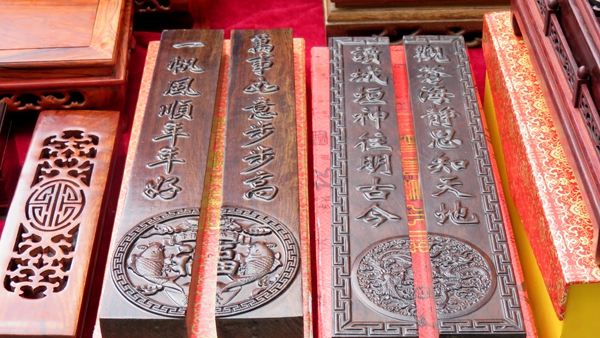 觀滄海靜思知天地
讀城垣神往明古今
萬事如意步步高
一帆風順年年好